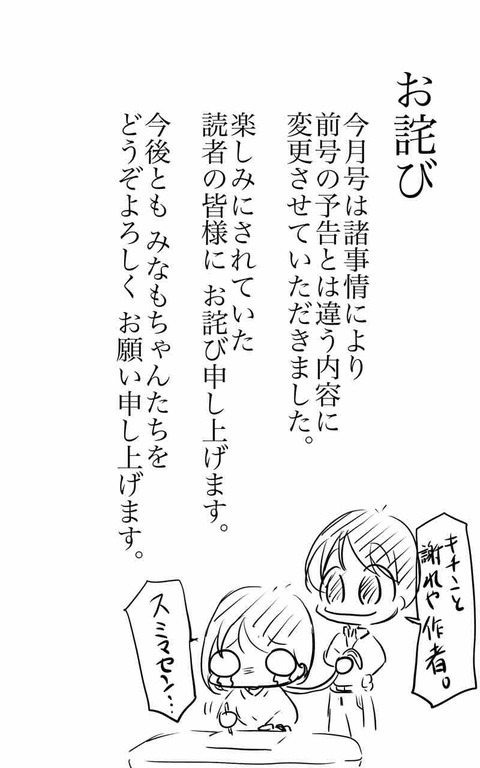 お詫び
今月号は諸事情により
前号の予告とは違う内容に
変更させていただきました。
楽しみにされていた
読者の皆様に お詫び申し上げます。
今後とも みなもちゃんたちを
どうぞよろしく お願い申し上げます。
キチンと
謝れや作者。
スミマセン…